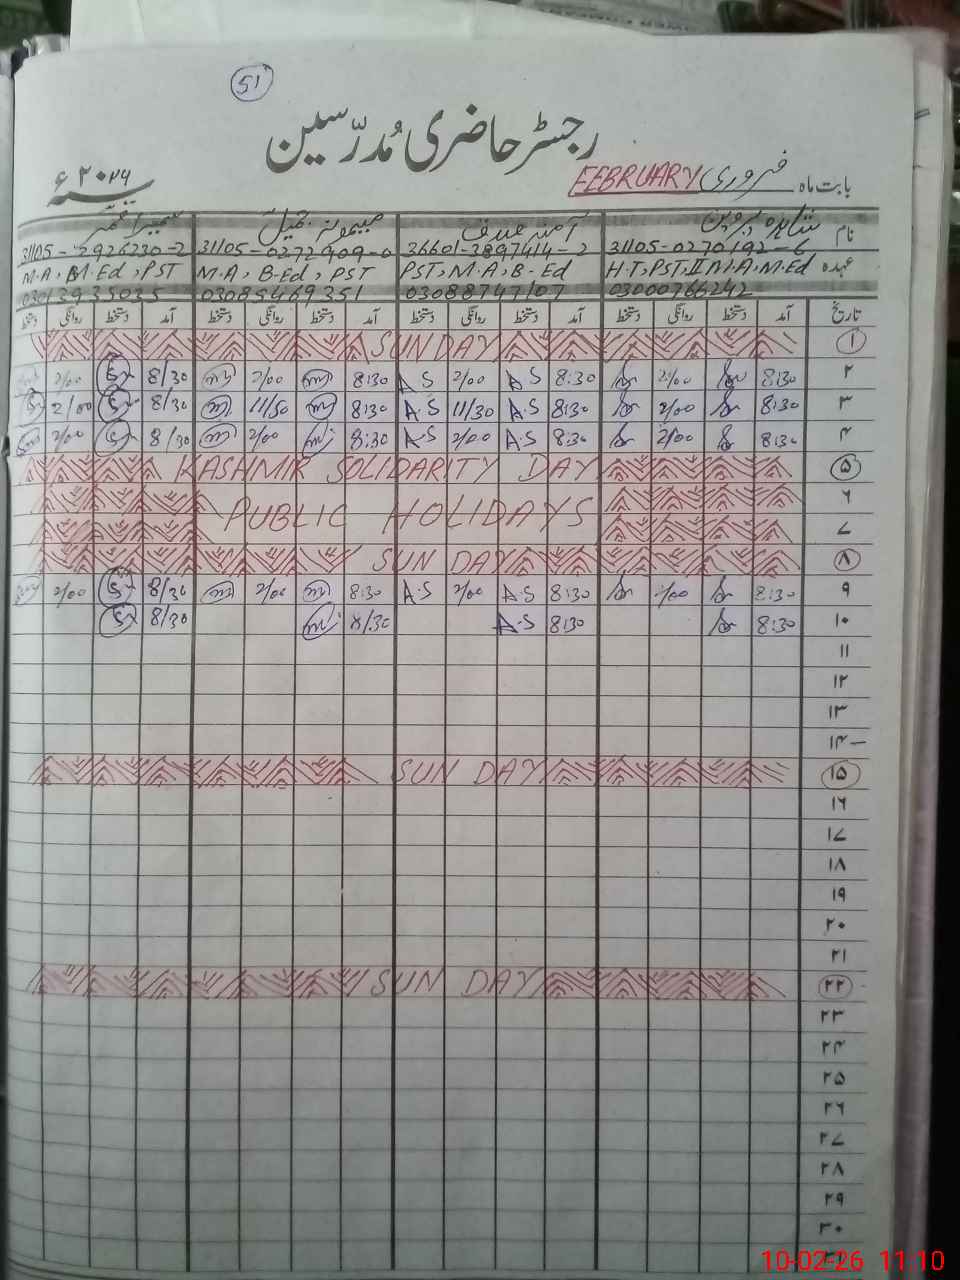 51
رجسٹر حاضری مُدرّسین
بابت ماہ فروری FEBRUARY سنہ ۲۰۲۶ء
نام شاہدہ پروین آمنہ صدف میمونہ جمیل سمیرا
31105-0270192-6 36601-3897414-2 31105-0272909-0 31105-2926230-2
عہدہ H.T,PST,II M.A,M.Ed PST,M.A,B-Ed M.A, B-Ed, PST M.A, B.Ed, PST
03000766242 03088747107 03085469351 03013935035
تاریخ آمد دستخط روانگی دستخط آمد دستخط روانگی دستخط آمد دستخط روانگی دستخط آمد دستخط روانگی دستخط
۱ SUNDAY
۲ 8:30 2/00 8:30 A.S 2/00 A.S 8:30 2/00 8/30 2/00
۳ 8:30 2/00 8:30 A.S 11/30 A.S 8:30 11/50 8/30 2/00
۴ 8:30 2/00 8:30 A.S 2/00 A.S 8:30 2/00 8/30 2/00
۵ KASHMIR SOLIDARITY DAY
۶
PUBLIC HOLIDAYS
۷
۸ SUNDAY
۹ 8:30 2/00 8:30 A.S 2/00 A.S 8:30 2/00 8/30 2/00
۱۰ 8:30 8:30 A.S 8/30 8/30
۱۱
۱۲
۱۳
۱۴
۱۵ SUNDAY
۱۶
۱۷
۱۸
۱۹
۲۰
۲۱
۲۲ SUNDAY
۲۳
۲۴
۲۵
۲۶
۲۷
۲۸
۲۹
۳۰
10-02-26 11:10